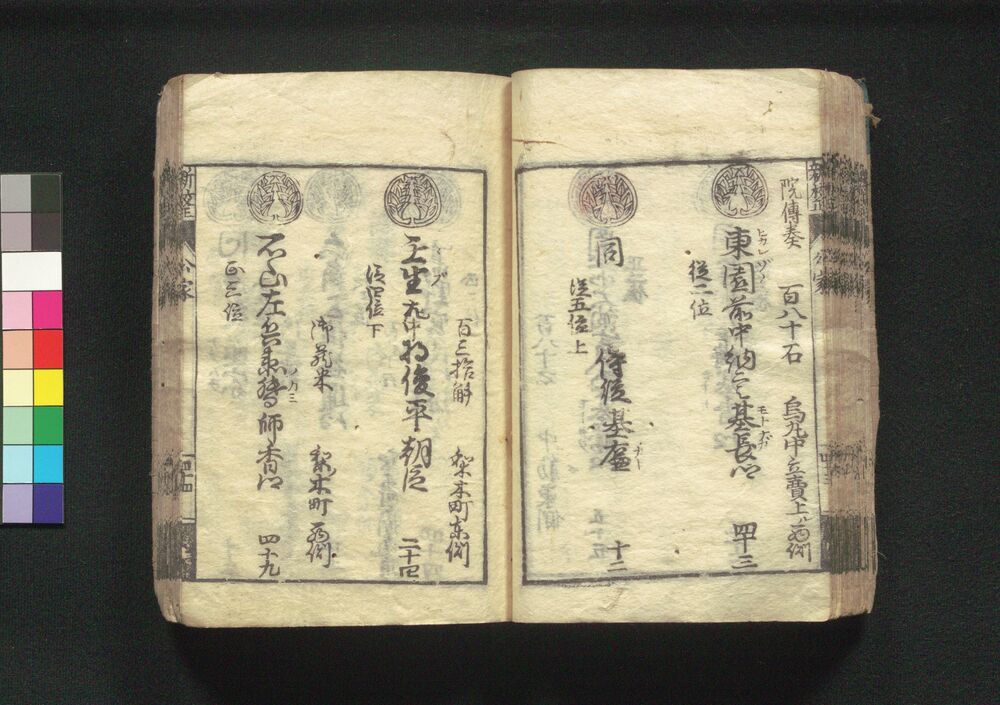 院傳奏 百八十石 烏丸中立賣上ル西側
東園前中納言基長卿 四十三
ヒカシゾノ
モトナガ
従二位
同 侍従基 十二
従五位上
百三拾斛 梨木町東側
壬生左中将俊平朝臣 二十四
ブ
従四位下
御蔵米 梨木町西側
石山左兵衛督師香卿 四十九
正三位
新校正
公家
四十四